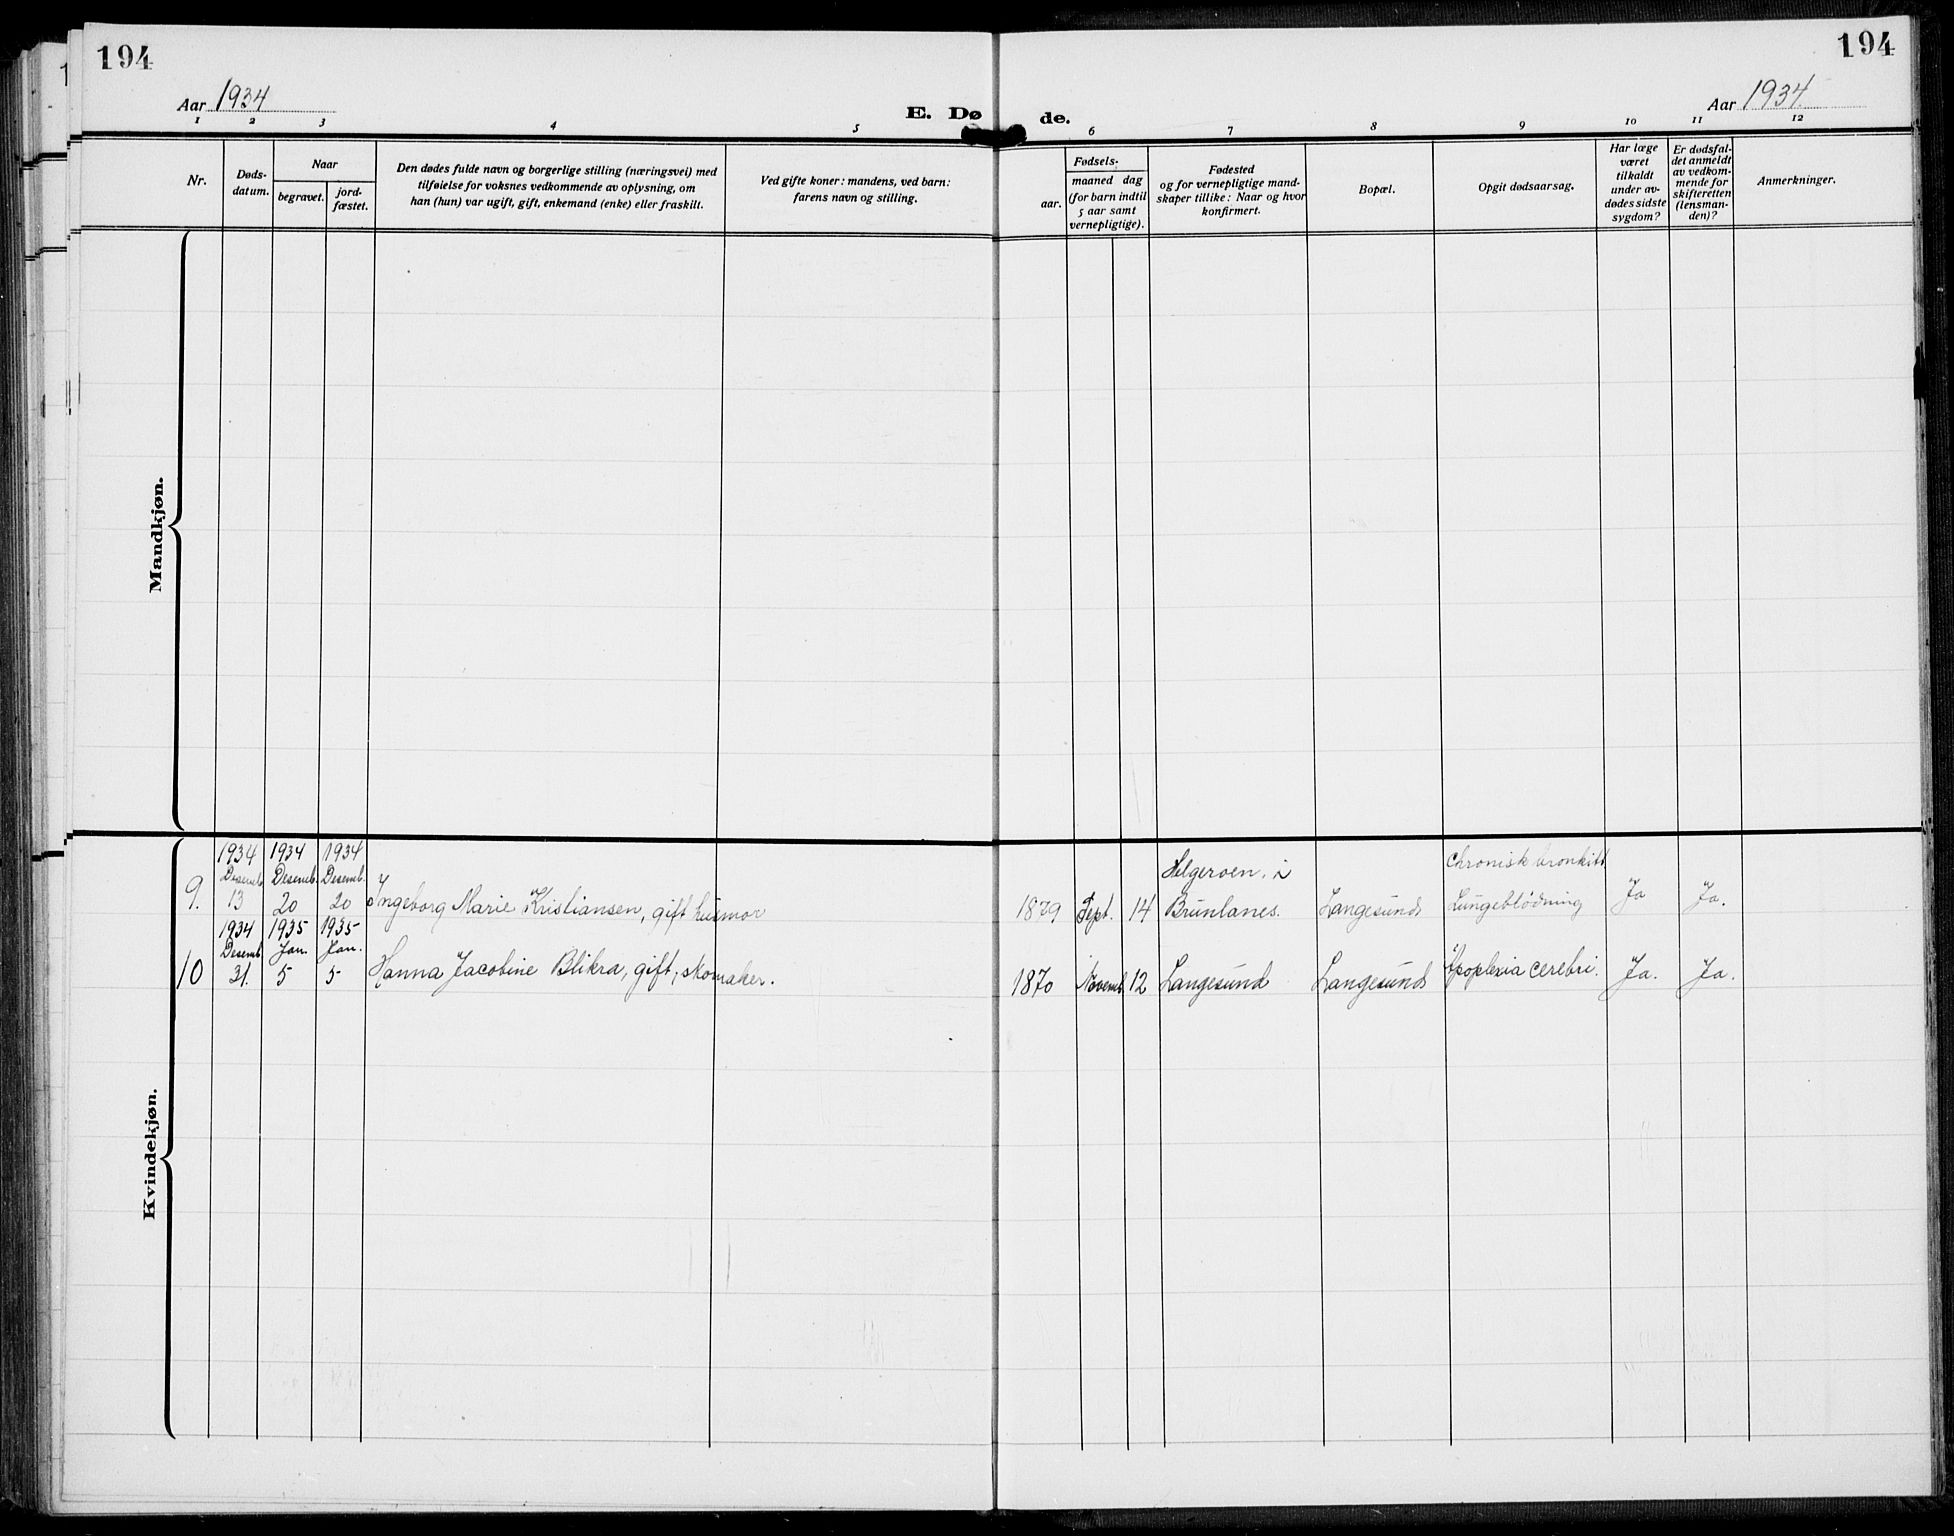 194
194
Aar 1934
Aar 1934.
E. Dø
de.
1 2 3 4 5 6 7 8 9 10 11 12
Nr.
Døds-
datum.
Naar
begravet.
jord-
fæstet.
Den dødes fulde navn og borgerlige stilling (næringsvei) med
tilføielse for voksnes vedkommende av oplysning, om
han (hun) var ugift, gift, enkemand (enke) eller fraskilt.
Ved gifte koner: mandens, ved barn:
farens navn og stilling.
Fødsels-
aar.
maaned dag
(for barn indtil
5 aar samt
vernepligtige).
Fødested
og for vernepligtige mand-
skaper tillike: Naar og hvor
konfirmert.
Bopæl.
Opgit dødsaarsag.
Har læge
været
tilkaldt
under av-
dødes sidste
sygdom?
Er dødsfal-
det anmeldt
av vedkom-
mende for
skifteretten
(lensman-
den)?
Anmerkninger.
Mandkjøn.
Kvindekjøn.
1934 1934 1934
Desemb. Desemb. Desemb. Helgeroen, i Chronisk bronkitt
9. 13 20 20 Ingeborg Marie Kristiansen, gift husmor 1879 Sept. 14 Brunlanes. Langesund Lungeblødning Ja Ja.
1934 1935 1935
Desemb. Jan. Jan.
10 31. 5 5 Hanna Jacobine Blikra, gift, skomaker. 1870 Novemb. 12 Langesund Langesund Apoplexia cerebri. Ja. Ja.